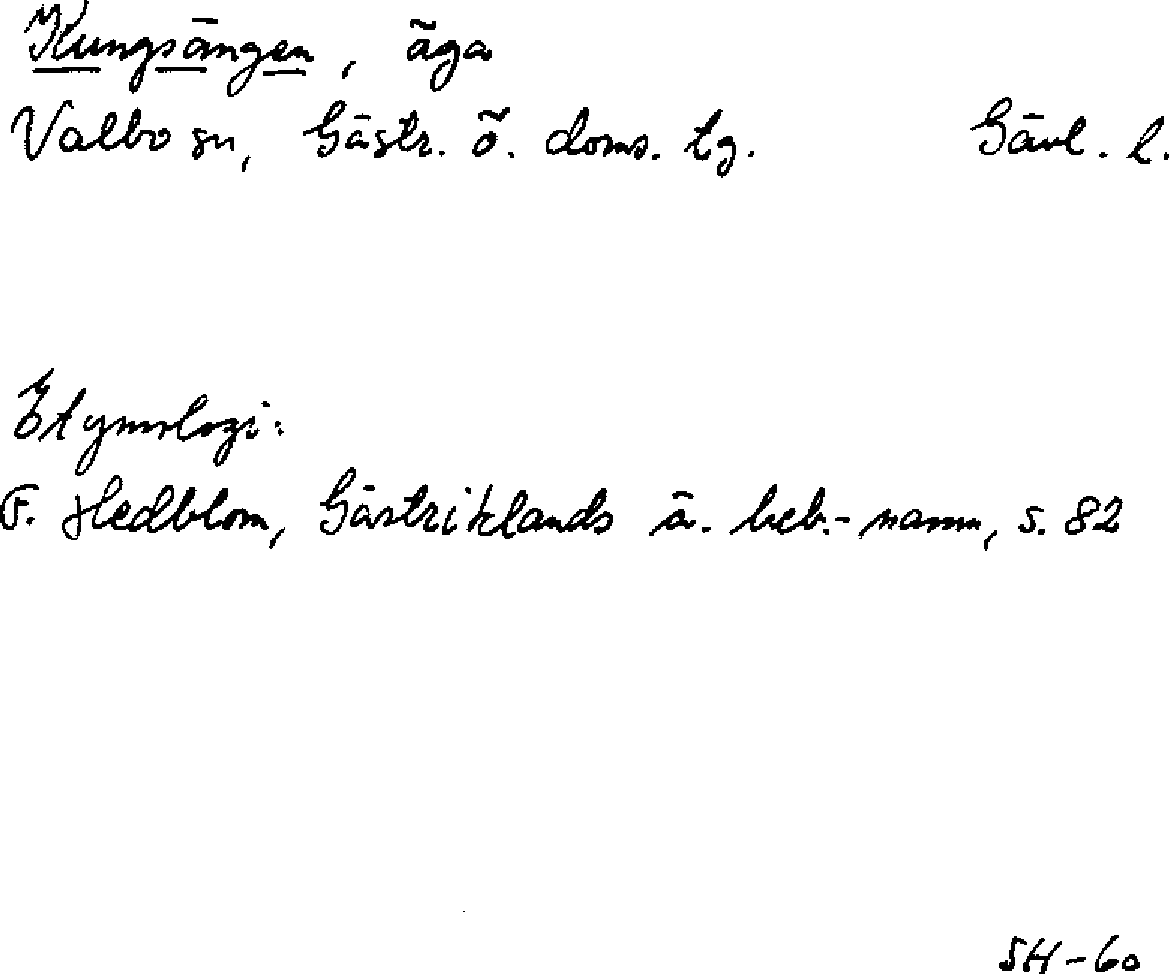 Kungsängen, äga
Valbo sn, Gästr. ö. doms. tg. Gävl. l.
Etymologi:
F. Hedblom, Gästriklands ä. beb.-namn, s. 82
SH-60